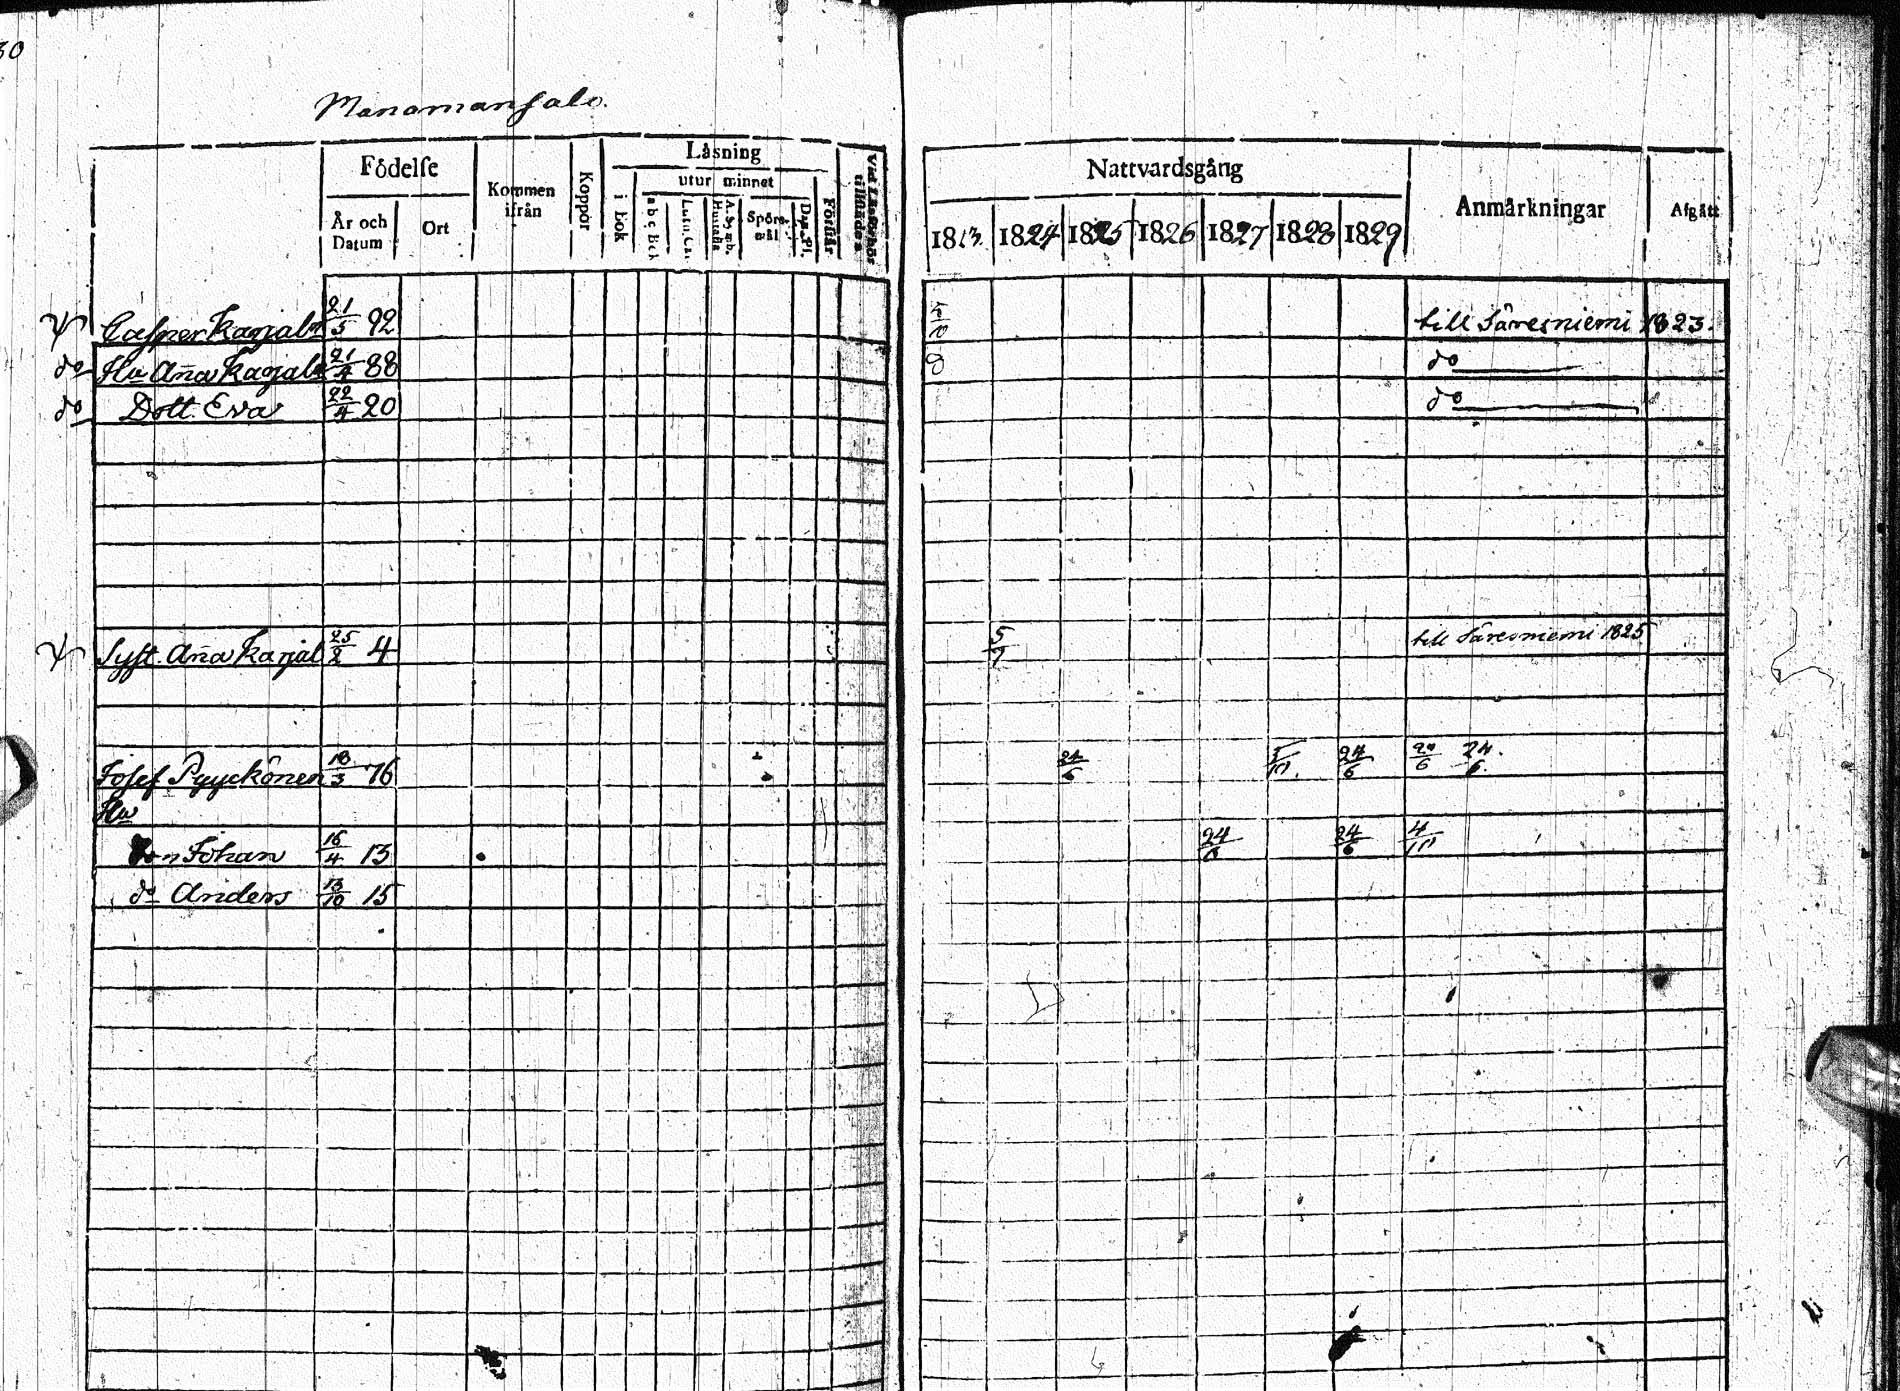 30
Manamansalo.
Födelse
År och Datum
Ort
Kommen ifrån
Koppor
Läsning
i bok
utur minnet
a b c Bok
Spörsmål
Förstår
Nattvardsgång
1823 1824 1825 1826 1827 1828 1829
Anmärkningar
Afgått
Casper Karjala 21/5 92 5/10 till Säresniemi 1823.
do Hu Aña Karjala 21/4 88 do
do Dott Eva 22/4 20 do
Syst. Aña Karjal 25/2 4 5/7 till Säresniemi 1825
Josef Pyyckönen 18/3 76 24/6 24/6 24/6
Hu
Son Johan 16/4 13 24/6 24/6 4/10
do Anders 13/10 15